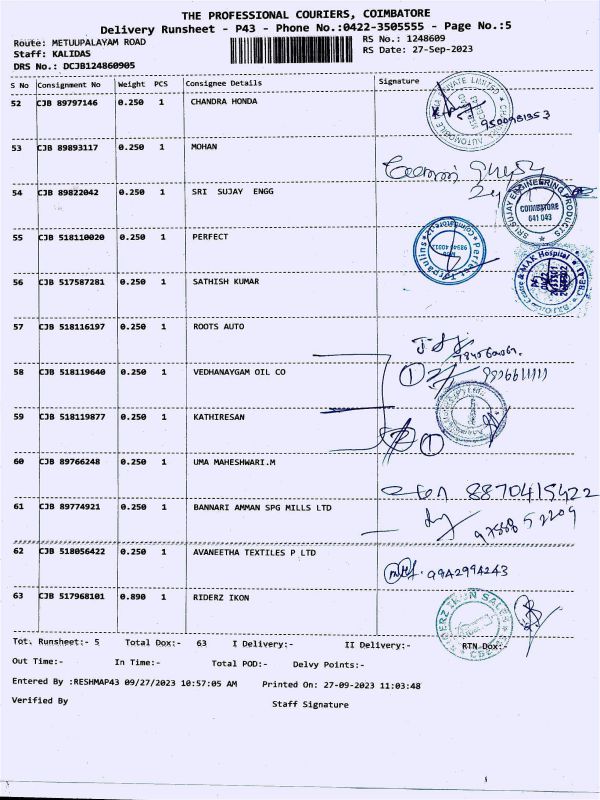 THE PROFESSIONAL COURIERS, COIMBATORE
Delivery Runsheet - P43 - Phone No.:0422-3505555 - Page No.:5
Route: METUUPALAYAM ROAD RS No.: 1248609
Staff: KALIDAS RS Date: 27-Sep-2023
DRS No.: DCJB124860905
S No Consignment No Weight PCS Consignee Details Signature
52 CJB 89797146 0.250 1 CHANDRA HONDA
53 CJB 89893117 0.250 1 MOHAN
54 CJB 89822042 0.250 1 SRI SUJAY ENGG
SRI SUJAY ENGINEERING PRODUCTS
COIMBATORE
641 043
55 CJB 518110020 0.250 1 PERFECT
Perfect Tarpaulins
56 CJB 517587281 0.250 1 SATHISH KUMAR
Centre & MAK Hospital
57 CJB 518116197 0.250 1 ROOTS AUTO
58 CJB 518119640 0.250 1 VEDHANAYGAM OIL CO
1
59 CJB 518119877 0.250 1 KATHIRESAN
1
60 CJB 89766248 0.250 1 UMA MAHESHWARI.M
8870415422
61 CJB 89774921 0.250 1 BANNARI AMMAN SPG MILLS LTD
62 CJB 518056422 0.250 1 AVANEETHA TEXTILES P LTD
9942994243
63 CJB 517968101 0.890 1 RIDERZ IKON
RIDERZ IKON SALES
Tot. Runsheet:- 5 Total Dox:- 63 I Delivery:- II Delivery:- RTN Dox:-
Out Time:- In Time:- Total POD:- Delvy Points:-
Entered By :RESHMAP43 09/27/2023 10:57:05 AM Printed On: 27-09-2023 11:03:48
Verified By Staff Signature